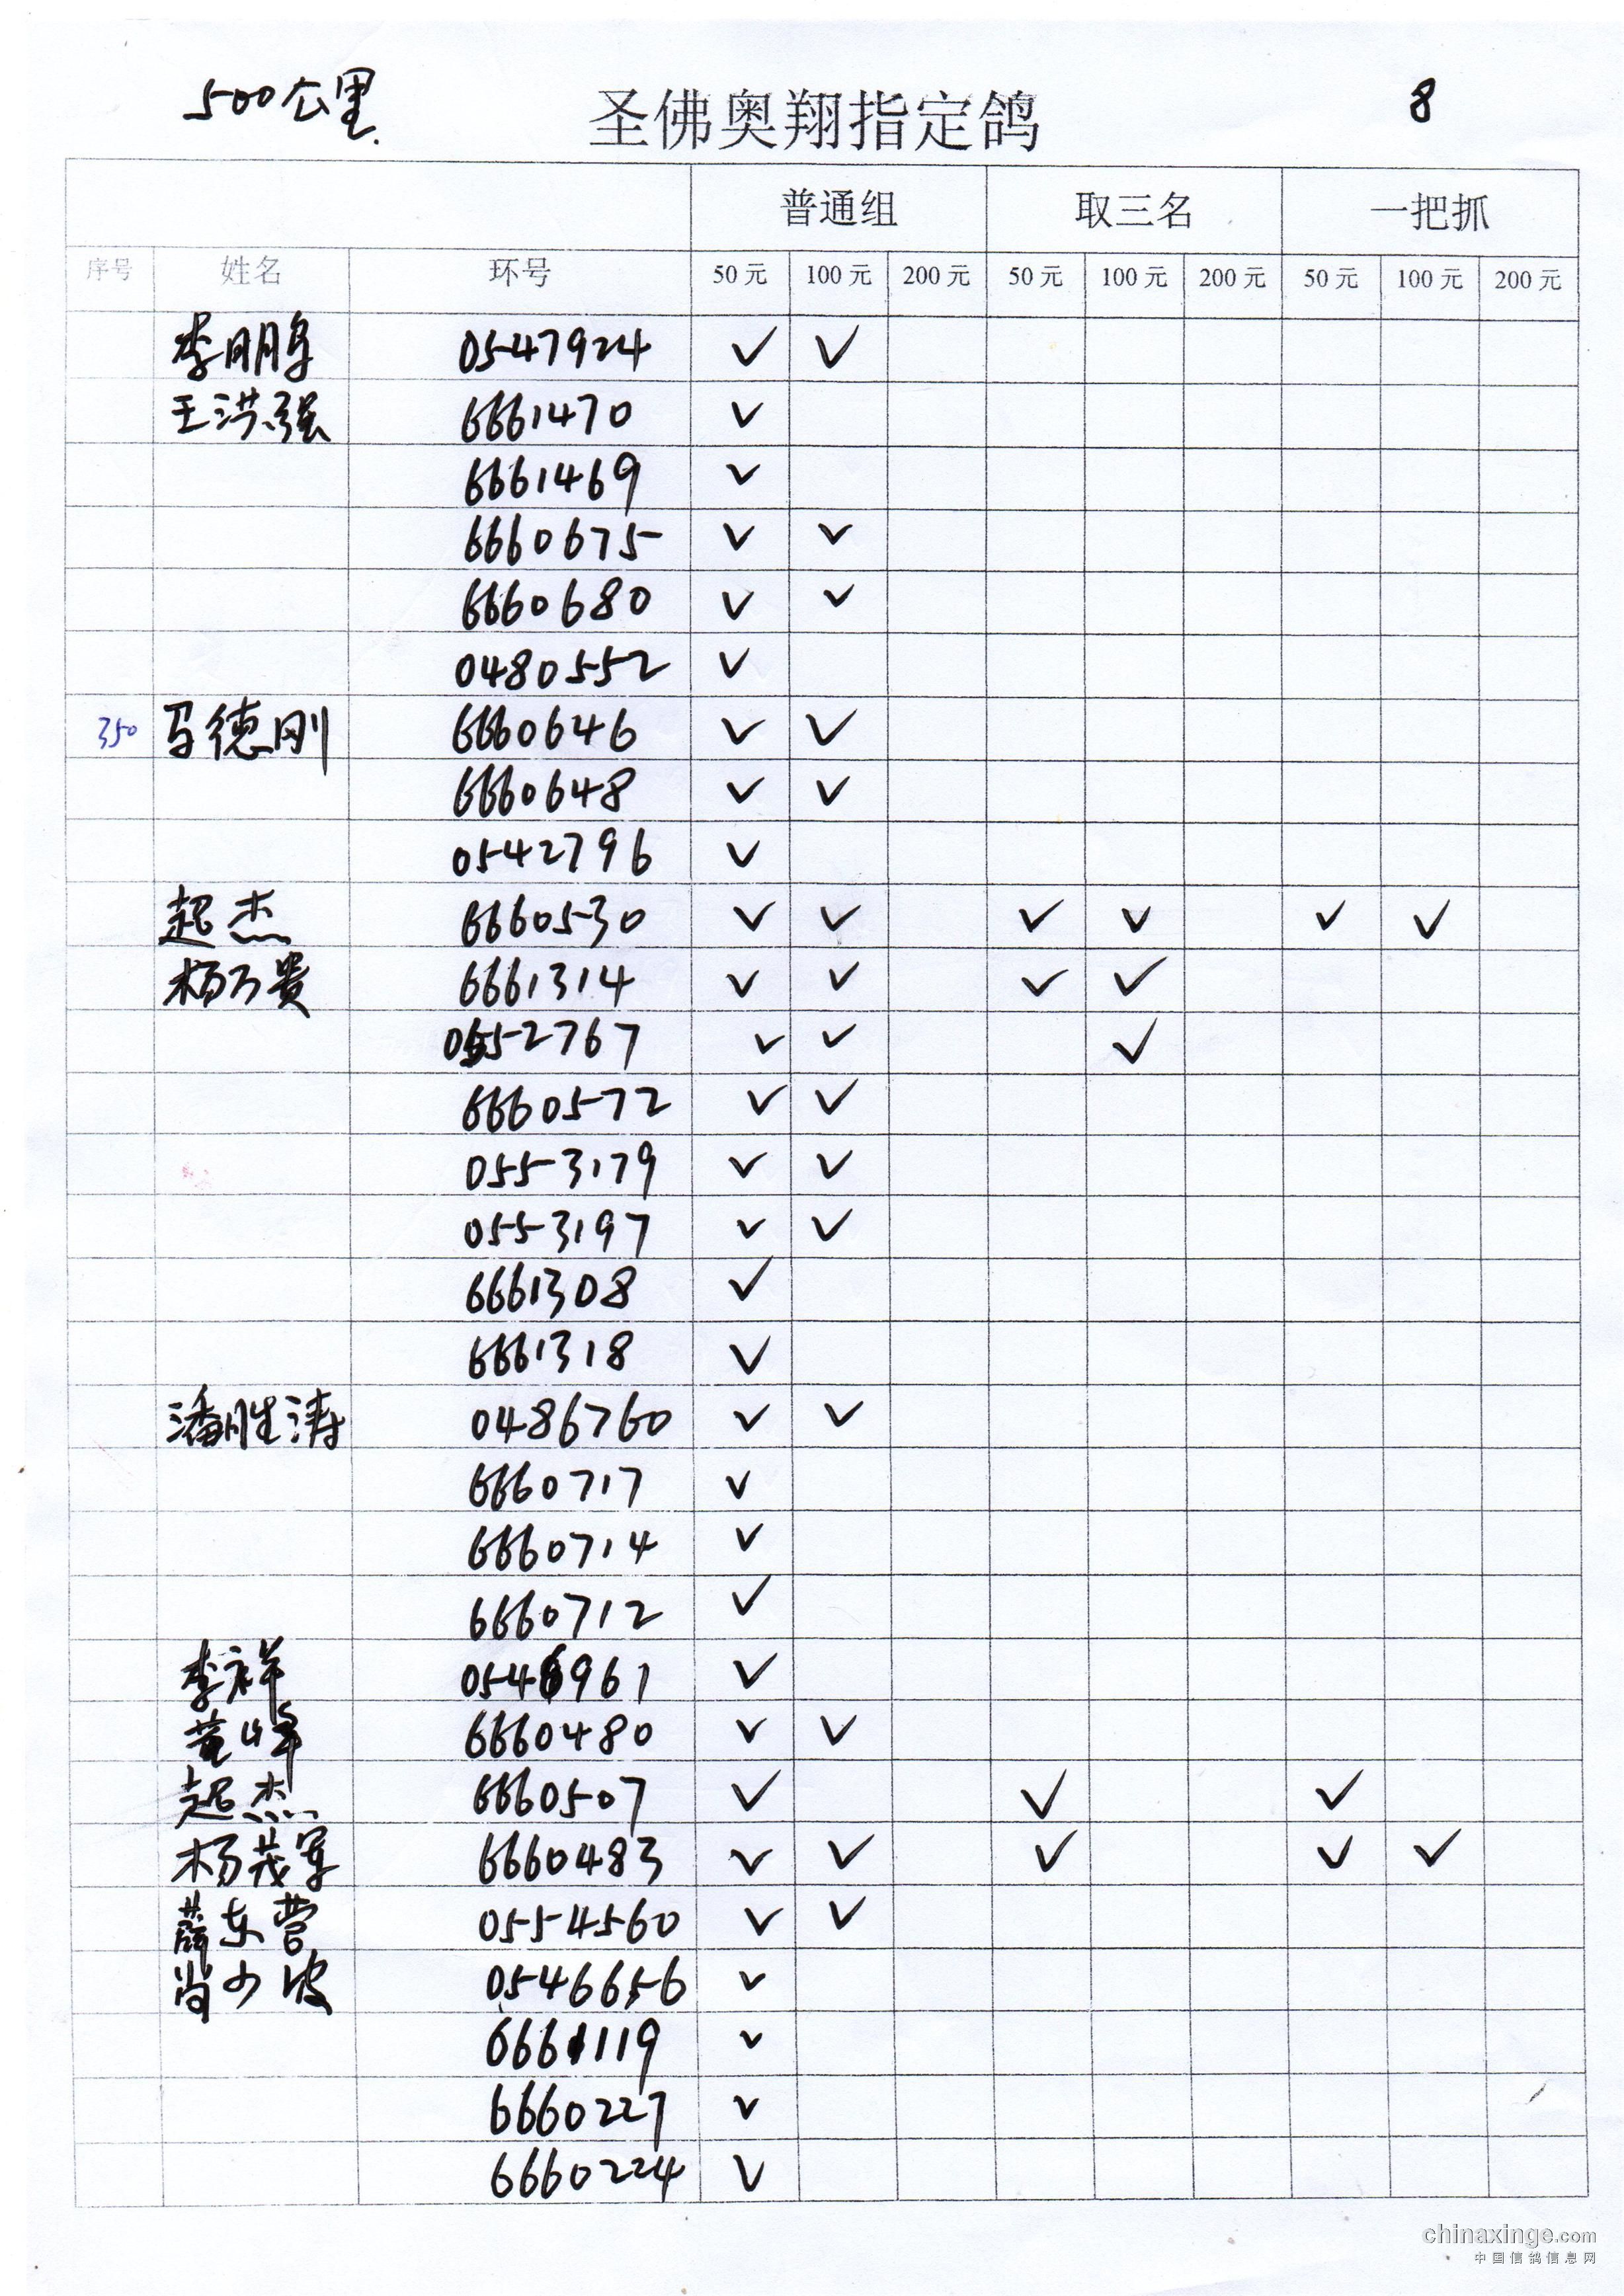 500公里 圣佛奥翔指定鸽 8
普通组 取三名 一把抓
序号 姓名 环号 50元 100元 200元 50元 100元 200元 50元 100元 200元
李鹏 0547924 ✓ ✓
王洪强 6661470 ✓
6661469 ✓
6660675 ✓ ✓
6660680 ✓ ✓
0480552 ✓
350 马德刚 6660646 ✓ ✓
6660648 ✓ ✓
0542796 ✓
起杰 6660530 ✓ ✓ ✓ ✓ ✓ ✓
杨万贵 6661314 ✓ ✓ ✓ ✓
0552767 ✓ ✓ ✓
6660572 ✓ ✓
0553179 ✓ ✓
0553197 ✓ ✓
6661308 ✓
6661318 ✓
潘胜涛 0486760 ✓ ✓
6660717 ✓
6660714 ✓
6660712 ✓
李祥 0546961 ✓
黄峰 6660480 ✓ ✓
起杰 6660507 ✓ ✓ ✓
杨茂军 6660483 ✓ ✓ ✓ ✓ ✓
薛东营 0554560 ✓ ✓
尚少波 0546656 ✓
6661119 ✓
6660227 ✓
6660224 ✓
chinaxinge.com
中国信鸽信息网